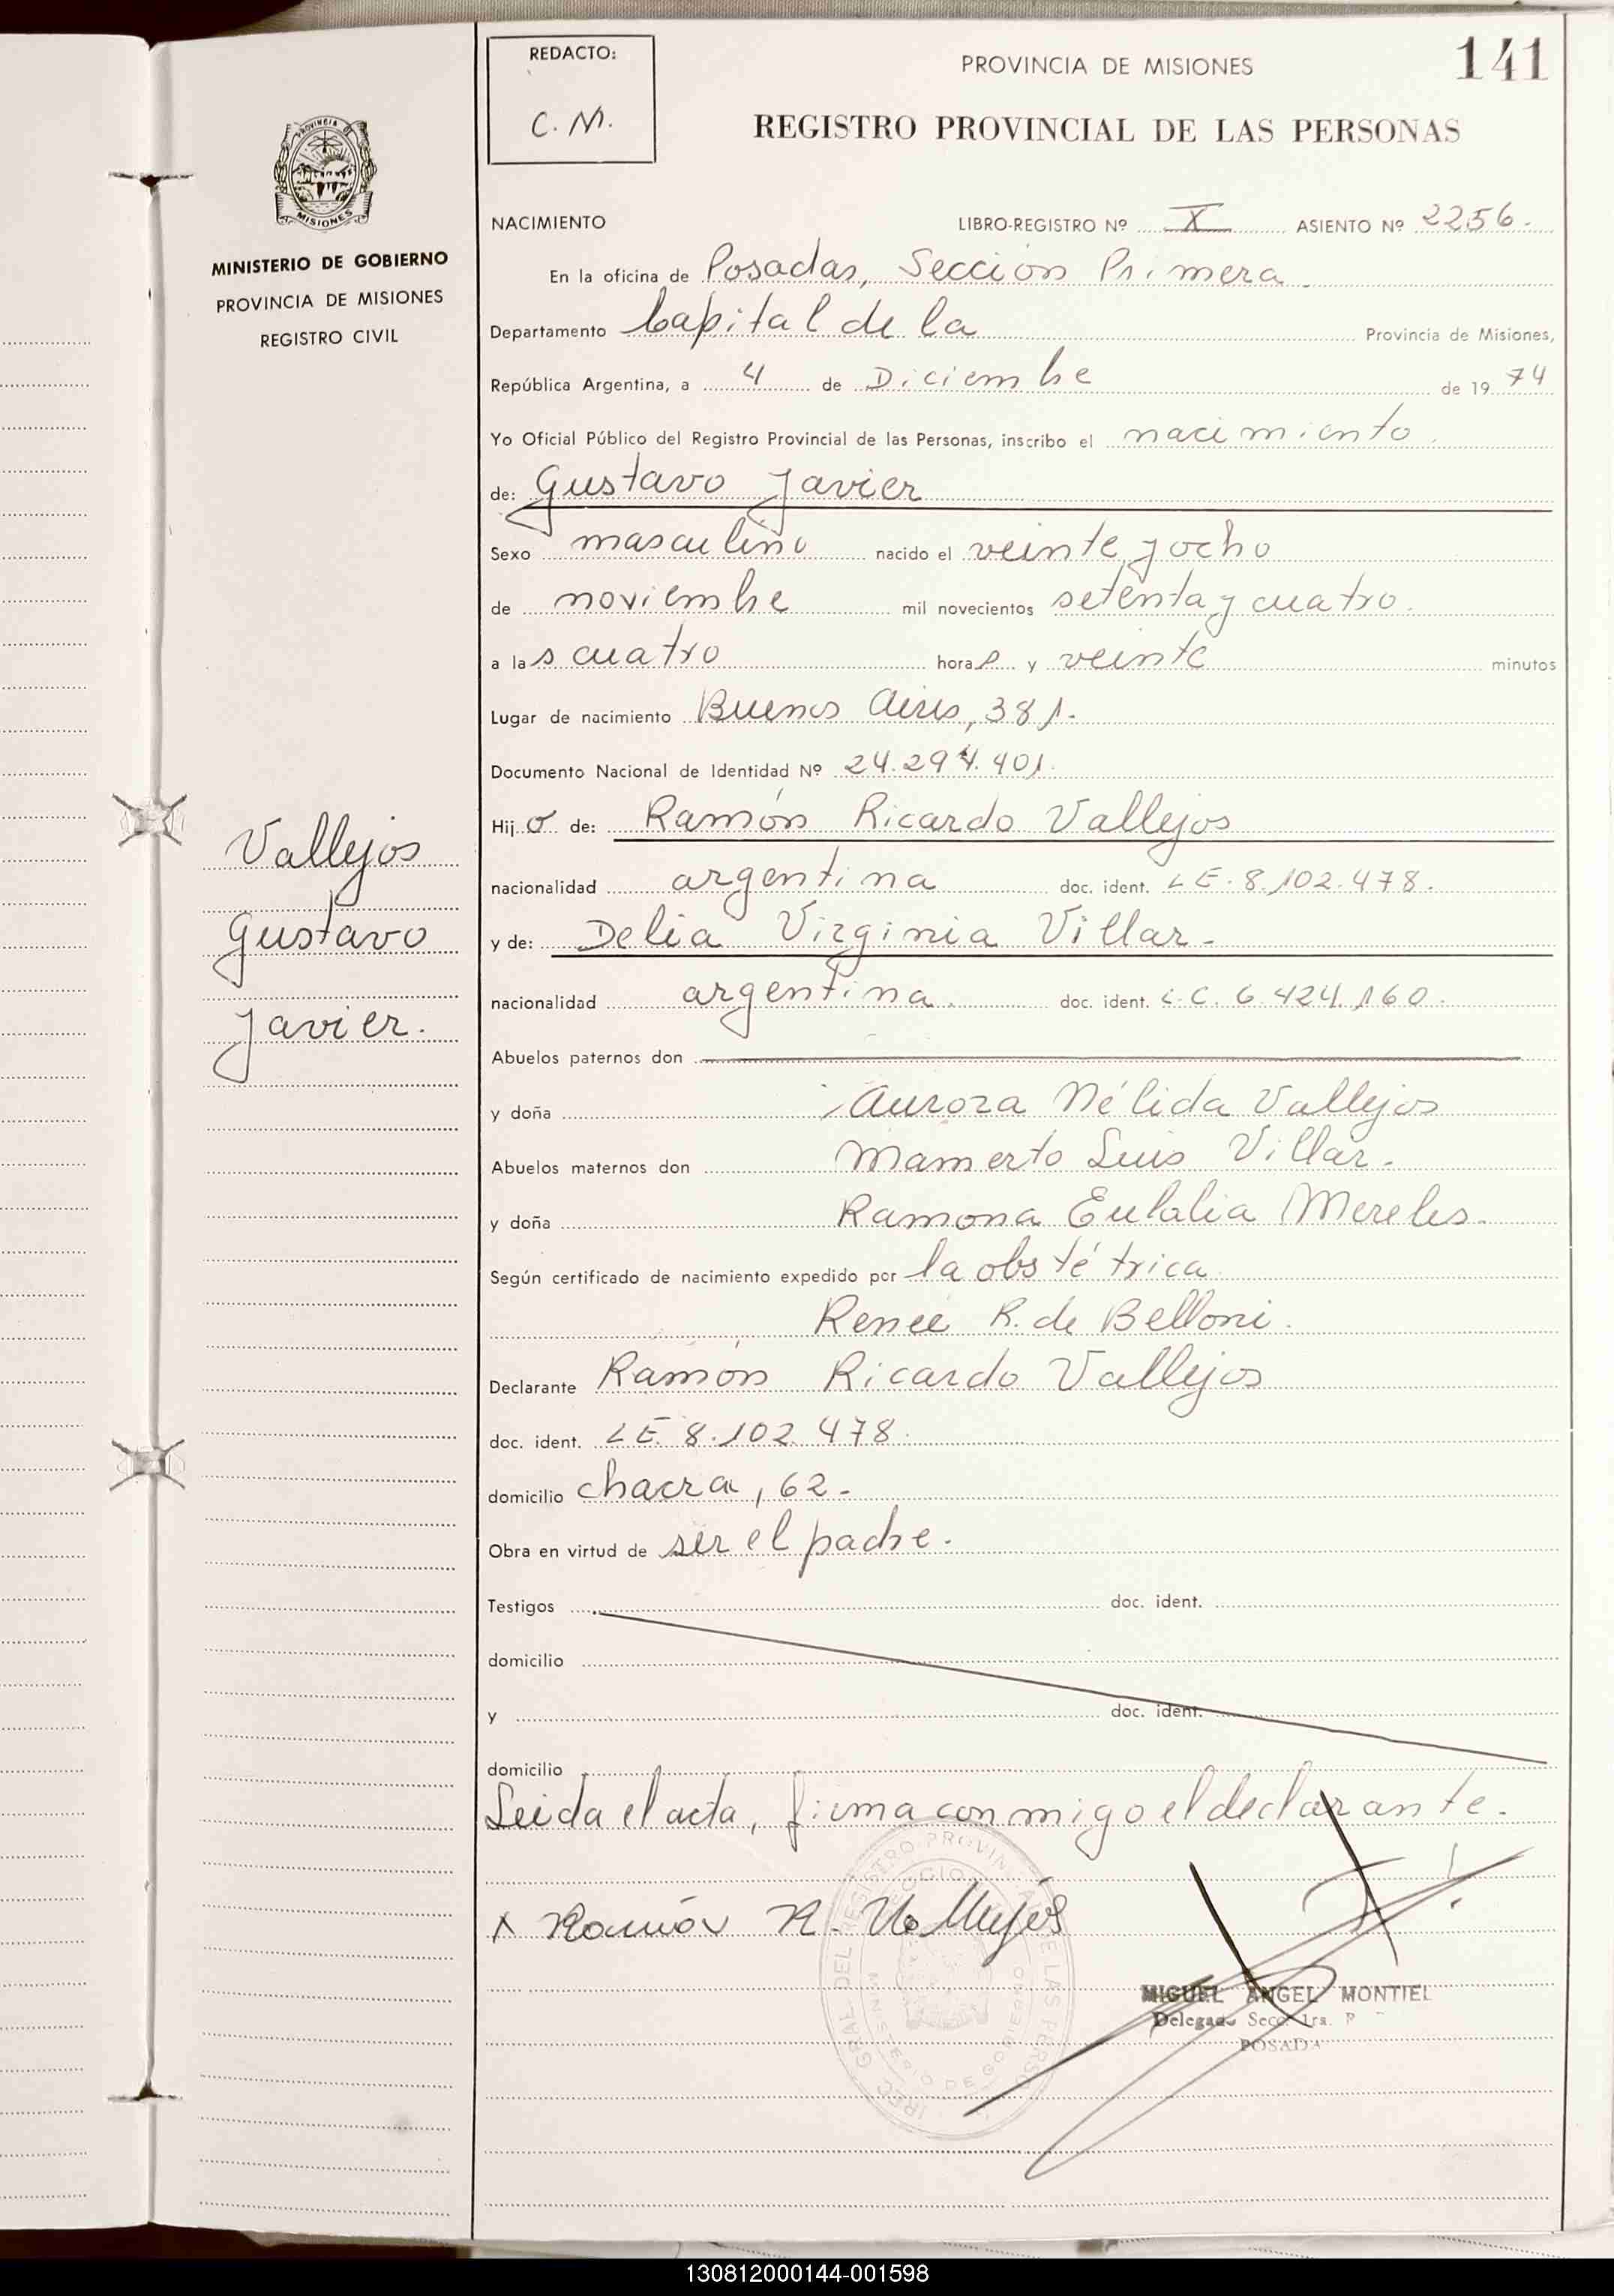 REDACTO:
C. M.
PROVINCIA DE MISIONES
141
REGISTRO PROVINCIAL DE LAS PERSONAS
PROVINCIA DE
MISIONES
MINISTERIO DE GOBIERNO
PROVINCIA DE MISIONES
REGISTRO CIVIL
NACIMIENTO LIBRO-REGISTRO Nº X ASIENTO Nº 2256.
En la oficina de Posadas, Sección Primera.
Departamento Capital de la Provincia de Misiones,
República Argentina, a 4 de Diciembre de 19 74
Yo Oficial Público del Registro Provincial de las Personas, inscribo el nacimiento
de: Gustavo Javier
Sexo masculino nacido el veinte y ocho
de noviembre mil novecientos setenta y cuatro.
a las cuatro horas y veinte minutos
Lugar de nacimiento Buenos Aires, 381.
Documento Nacional de Identidad Nº 24.294.401.
Hijo de: Ramón Ricardo Vallejos
nacionalidad argentina doc. ident. LE. 8.102.478.
y de: Delia Virginia Villar.
nacionalidad argentina. doc. ident. L.C. 6.424.160.
Abuelos paternos don
y doña Aurora Nélida Vallejos
Abuelos maternos don Mamerto Luis Villar.
y doña Ramona Eulalia Mereles.
Según certificado de nacimiento expedido por la obstétrica
Renee R. de Belloni.
Declarante Ramón Ricardo Vallejos
doc. ident. LE. 8.102.478.
domicilio chacra, 62.
Obra en virtud de ser el padre.
Testigos doc. ident.
domicilio
y doc. ident.
domicilio
Leida el acta, firma conmigo el declarante.
x Ramón R. Vallejos
MIGUEL ANGEL MONTIEL
Delegado Secc. 1ra.
POSADA
Vallejos
Gustavo
Javier.
130812000144-001598